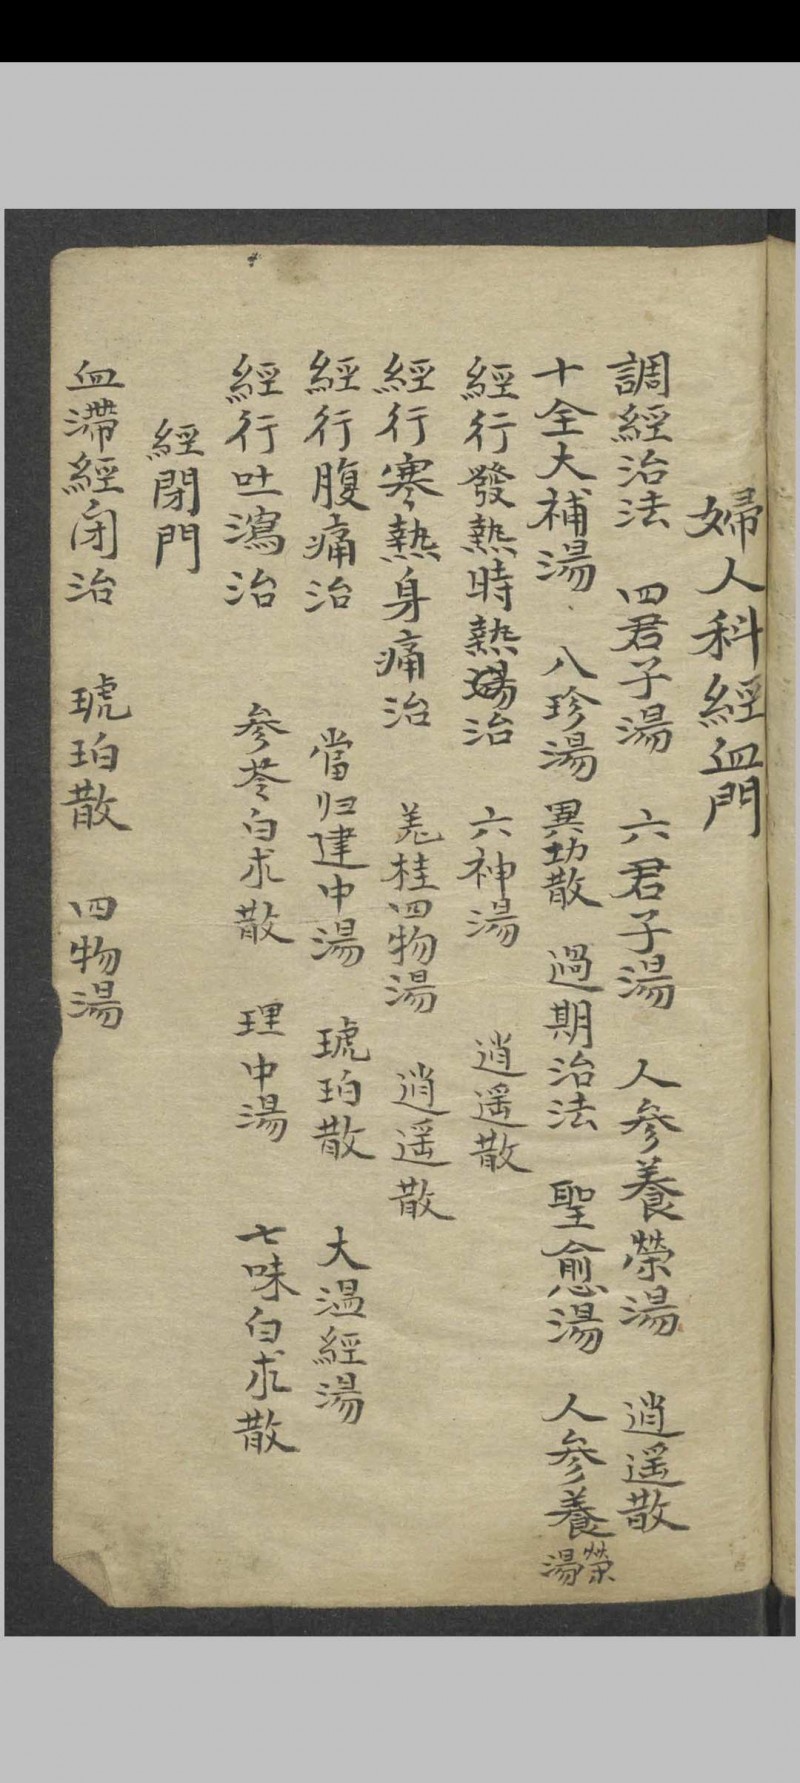 婦人科經血門
調經治法 四君子湯 六君子湯 人參養榮湯 逍遥散
十全大補湯 八珍湯 異功散 過期治法 聖愈湯 人參養榮湯
經行發熱時熱治 六神湯 逍遥散
經行寒熱身痛治 羗桂四物湯 逍遥散
經行腹痛治 當归建中湯 琥珀散 大温經湯
經行吐瀉治 參苓白朮散 理中湯 七味白朮散
經閉門
血滯經闭治 琥珀散 四物湯